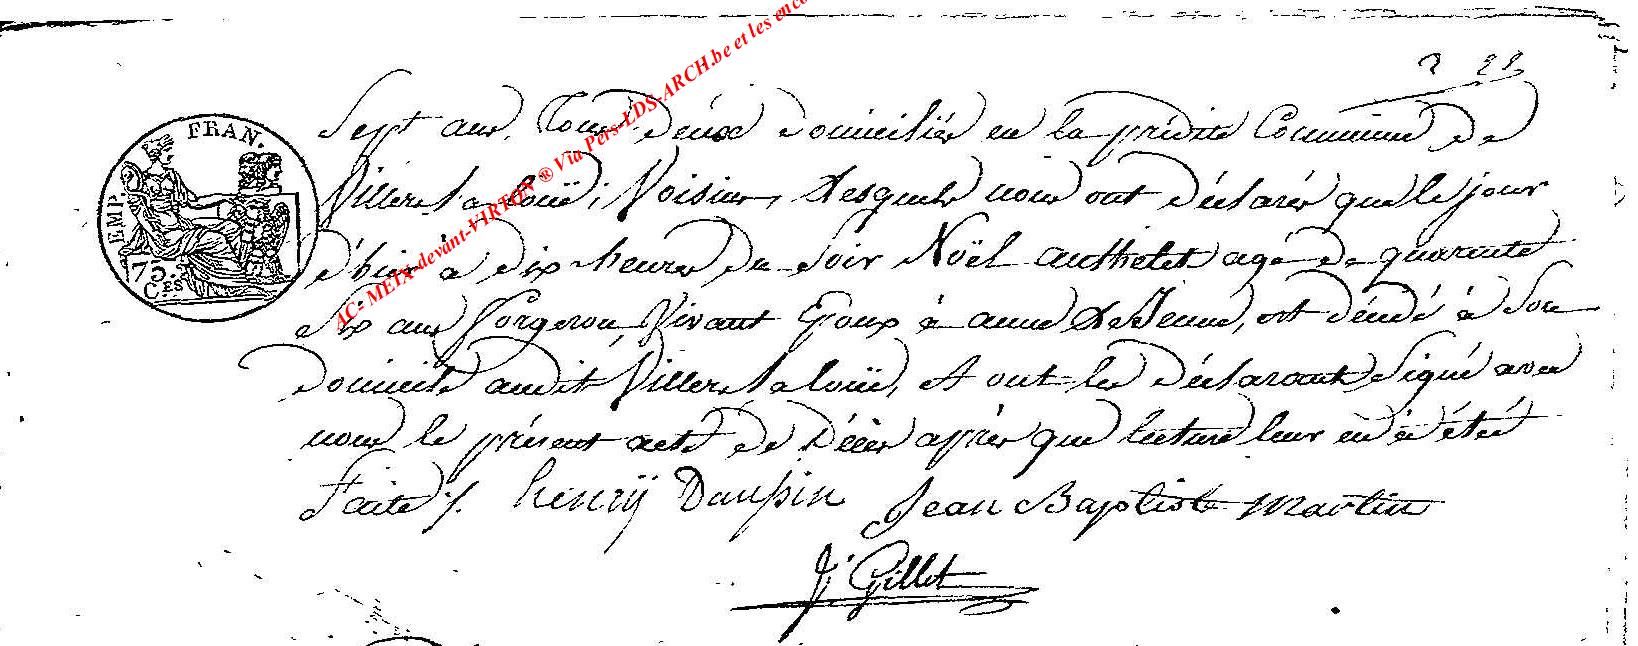 2 22
Sept ans, Tous deux domiciliés en la prédite Commune de
Villers la loüe, Voisins, Lesquels nous ont déclarés que le jour
d'hier à dix heures du Soir Noël authelet agé de quarante
Six ans forgeron, Vivant Epoux à anne LeJeune, est décédé à Son
domicile audit Villers la loüe, et ont les déclarants Signé avec
nous le présent acte de Décès après que lecture leur en a été
Faite /. henrÿ Daupin Jean Baptiste martin
Gillet
EMP. FRAN.
75 Ces
AC- MEIX-devant-VIRTON ® Via Pers-LDS-ARCH.be et les enco